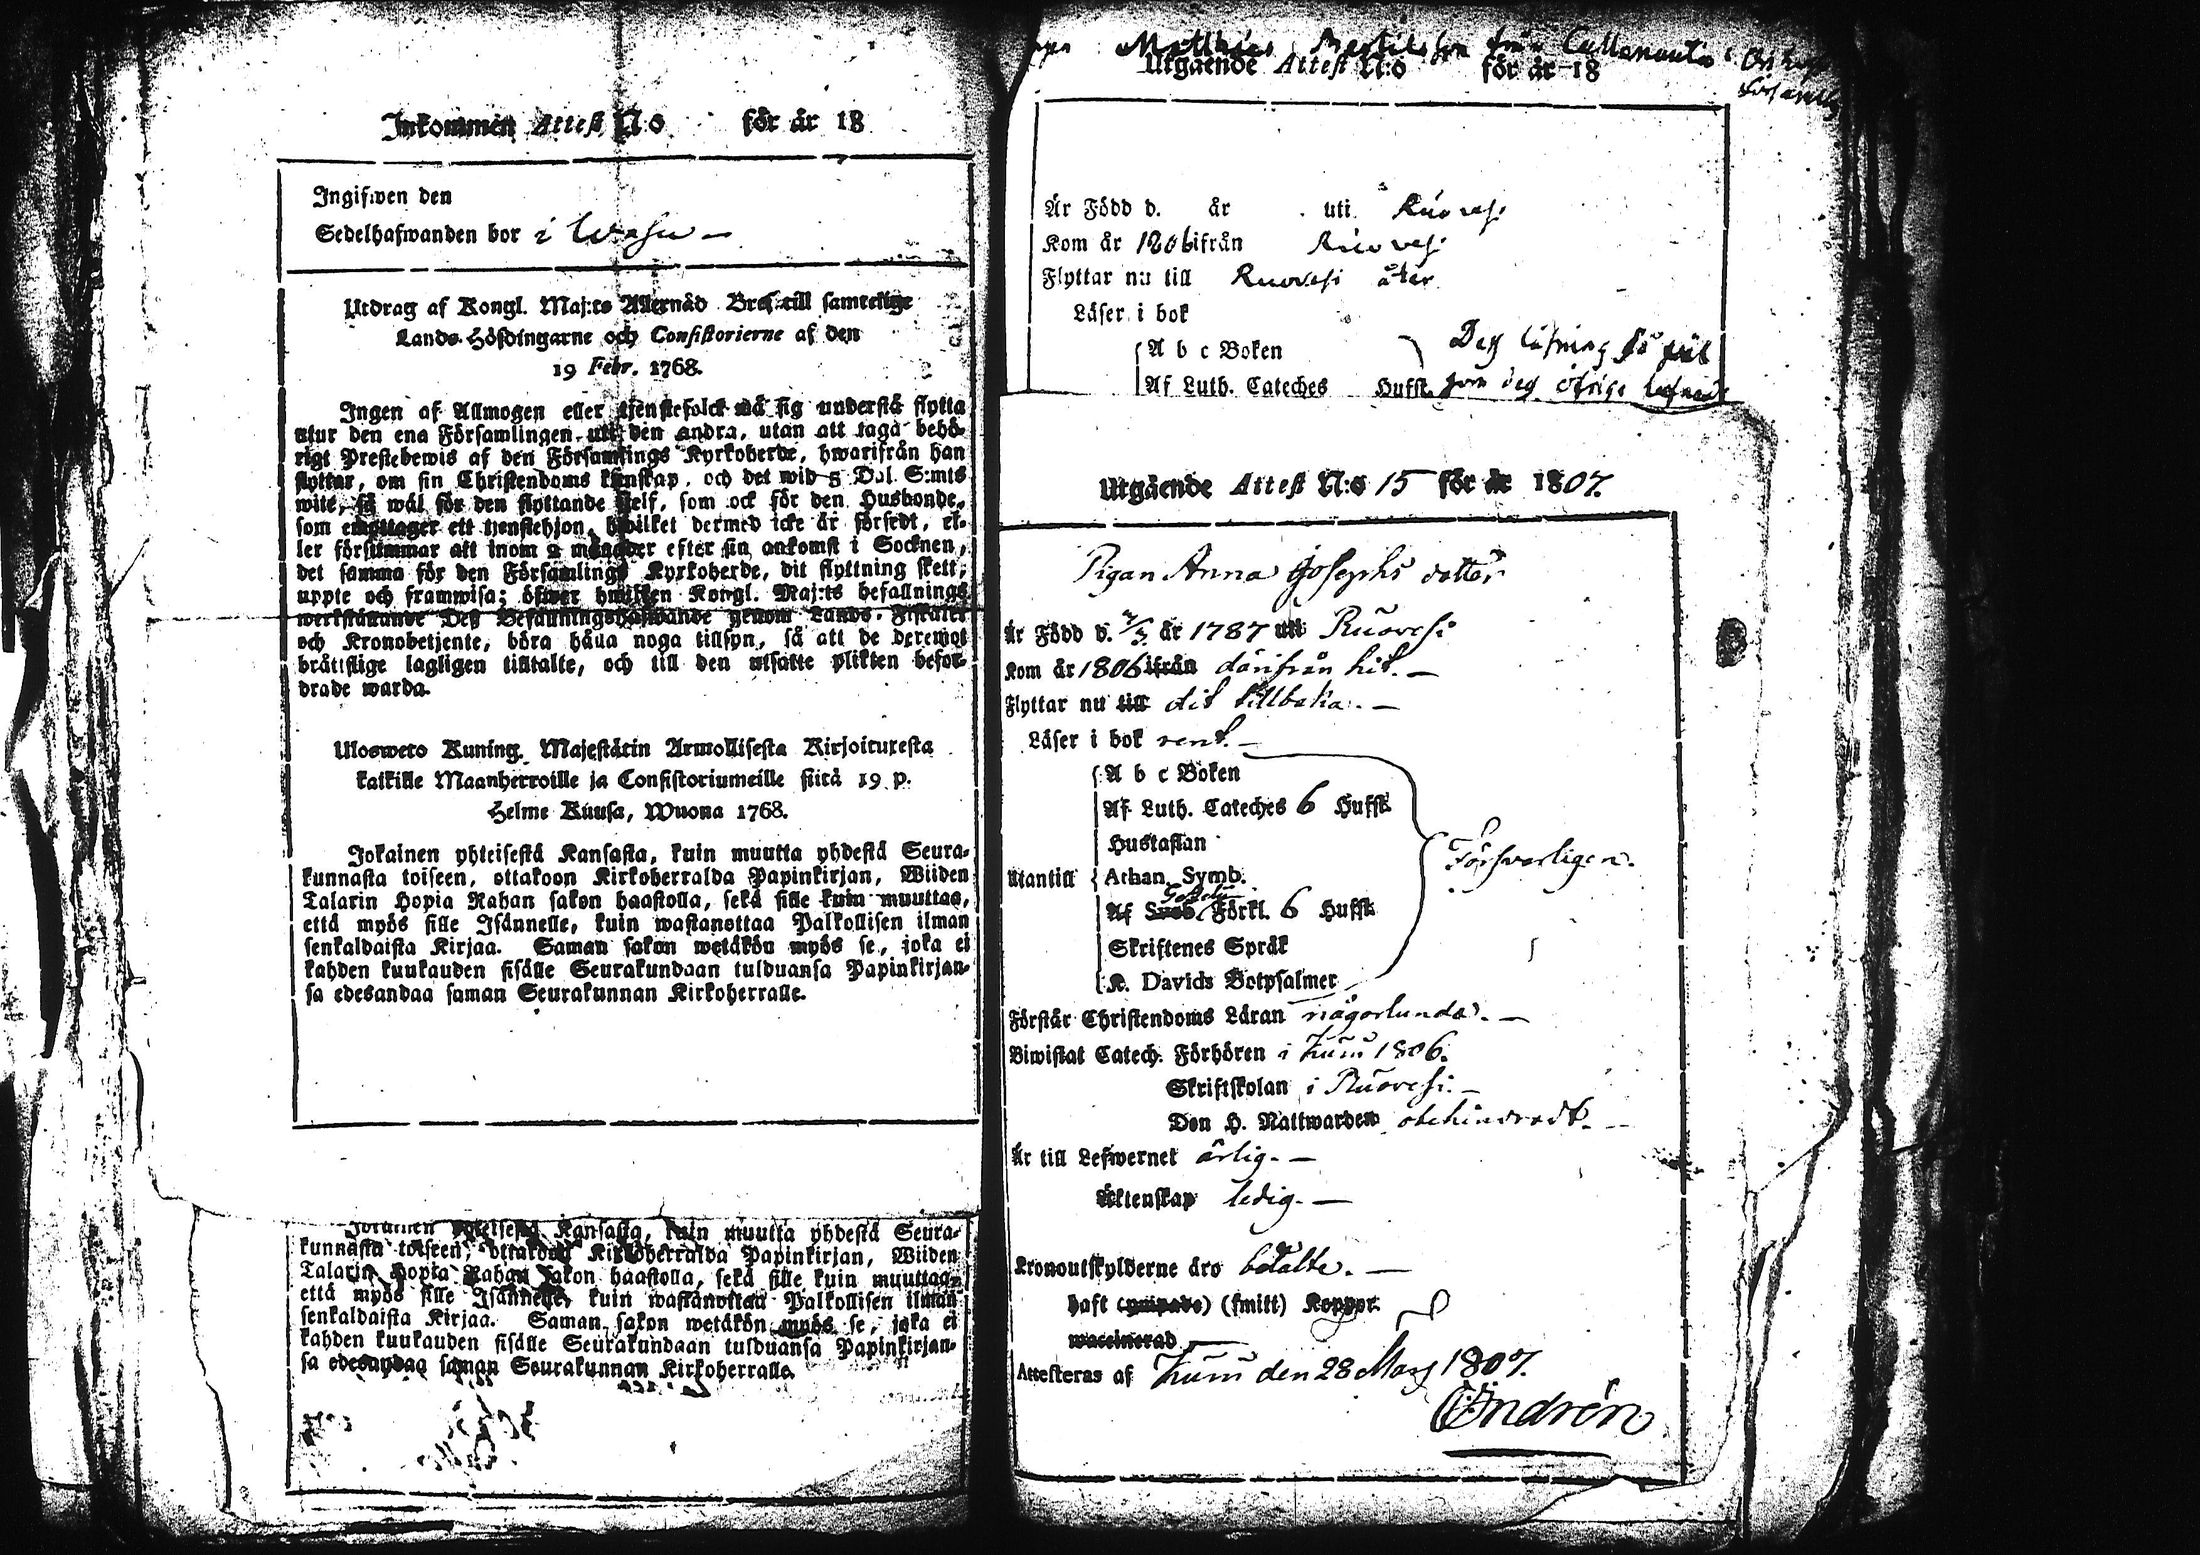 Inkommen Attest N:o för år 18
Ingifwen den
Sedelhafwanden bor i
Utdrag af Kongl. Maj:ts Allernåd Bref till samtelige
Lands-Höfdingarne och Consistorierne af den
19 Febr. 1768.
Ingen af Allmogen eller tjenstefolck må sig understå flytta
utur den ena Församlingen uti den andra, utan att taga behö-
rigt Prestebewis af den Församlings Kyrkoherde, hwarifrån han
flyttar, om sin Christendoms kunskap, och det wid 5 Dal. S:mts
wite, så wäl för den flyttande sjelf, som ock för den Husbonde,
som emottager ett tjenstehjon, hwilket dermed icke är försedt, el-
ler försummar att inom 2 månader efter sin ankomst i Socknen,
det samma för den Församlings Kyrkoherde, dit flyttning skett,
uppte och framwisa; öfwer hwilken Kongl. Maj:ts befallnings
werkställande Dess Befallningshafwande genom Lands-Fiskaler
och Kronobetjente, böra hålla noga tillsyn, så att de deremot
bråttslige lagligen tilltalte, och till den utsatte plikten befor-
drade warda.
Uloswето Kuning. Majestätin Armollisesta Kirjoituxesta
kaikille Maanherroille ja Consistoriumeille siitä 19 p.
Helme Kuusa, Wuona 1768.
Jokainen yhteisestä Kansasta, kuin muutta yhdestä Seura-
kunnasta toiseen, ottakoon Kirkoherralda Papinkirjan, Wiiden
Talarin Hopia Rahan sakon haastolla, sekä sille kuin muuttaa,
että myös sille Isännelle, kuin wastanottaa Palkollisen ilman
senkaldaista Kirjaa. Saman sakon wetäkön myös se, joka ei
kahden kuukauden sisälle Seurakundaan tulduansa Papinkirjan-
sa edesandaa saman Seurakunnan Kirkoherralle.
Jokainen yhteisestä Kansasta, kuin muutta yhdestä Seura-
kunnasta toiseen, ottakoon Kirkoherralda Papinkirjan, Wiiden
Talarin Hopia Rahan sakon haastolla, sekä sille kuin muuttaa,
että myös sille Isännelle, kuin wastanottaa Palkollisen ilman
senkaldaista Kirjaa. Saman sakon wetäkön myös se, joka ei
kahden kuukauden sisälle Seurakundaan tulduansa Papinkirjan-
sa edesandaa saman Seurakunnan Kirkoherralle.
Matthias Bertilsson från
Utgående Attest N:o för år 18
Är Född d. år uti Ruovesi
Kom år 1806 ifrån Ruovesi
Flyttar nu till Ruovesi åter
Läser i bok
A b c Boken
Af Luth. Cateches Hufst.
Utgående Attest N:o 15 för år 1807.
Pigan Anna Josephs dotter
Är Född d. 7/3 år 1787 uti Ruovesi
Kom år 1806 ifrån därifrån hit. —
Flyttar nu till dit tillbaka. —
Läser i bok rent. —
A b c Boken
Af Luth. Cateches 6 Hufst.
Hustaflan
Utantill Athan. Symb. Försvarligen.
Af Förkl. 6 Hufst.
Skriftenes Språk
K. Davids Botpsalmer
Förstår Christendoms Läran någorlunda. —
Biwistat Catech. Förhören i Kuru 1806.
Skriftskolan i Ruovesi. —
Den H. Nattwarden obehindradt. —
Är till Lefwernet ärlig. —
Äktenskap ledig. —
Kronoutskylderne äro betalte. —
haft (ympade) (smitt) Koppor.
waccinerad
Attesteras af Kuru den 28 Mars 1807.